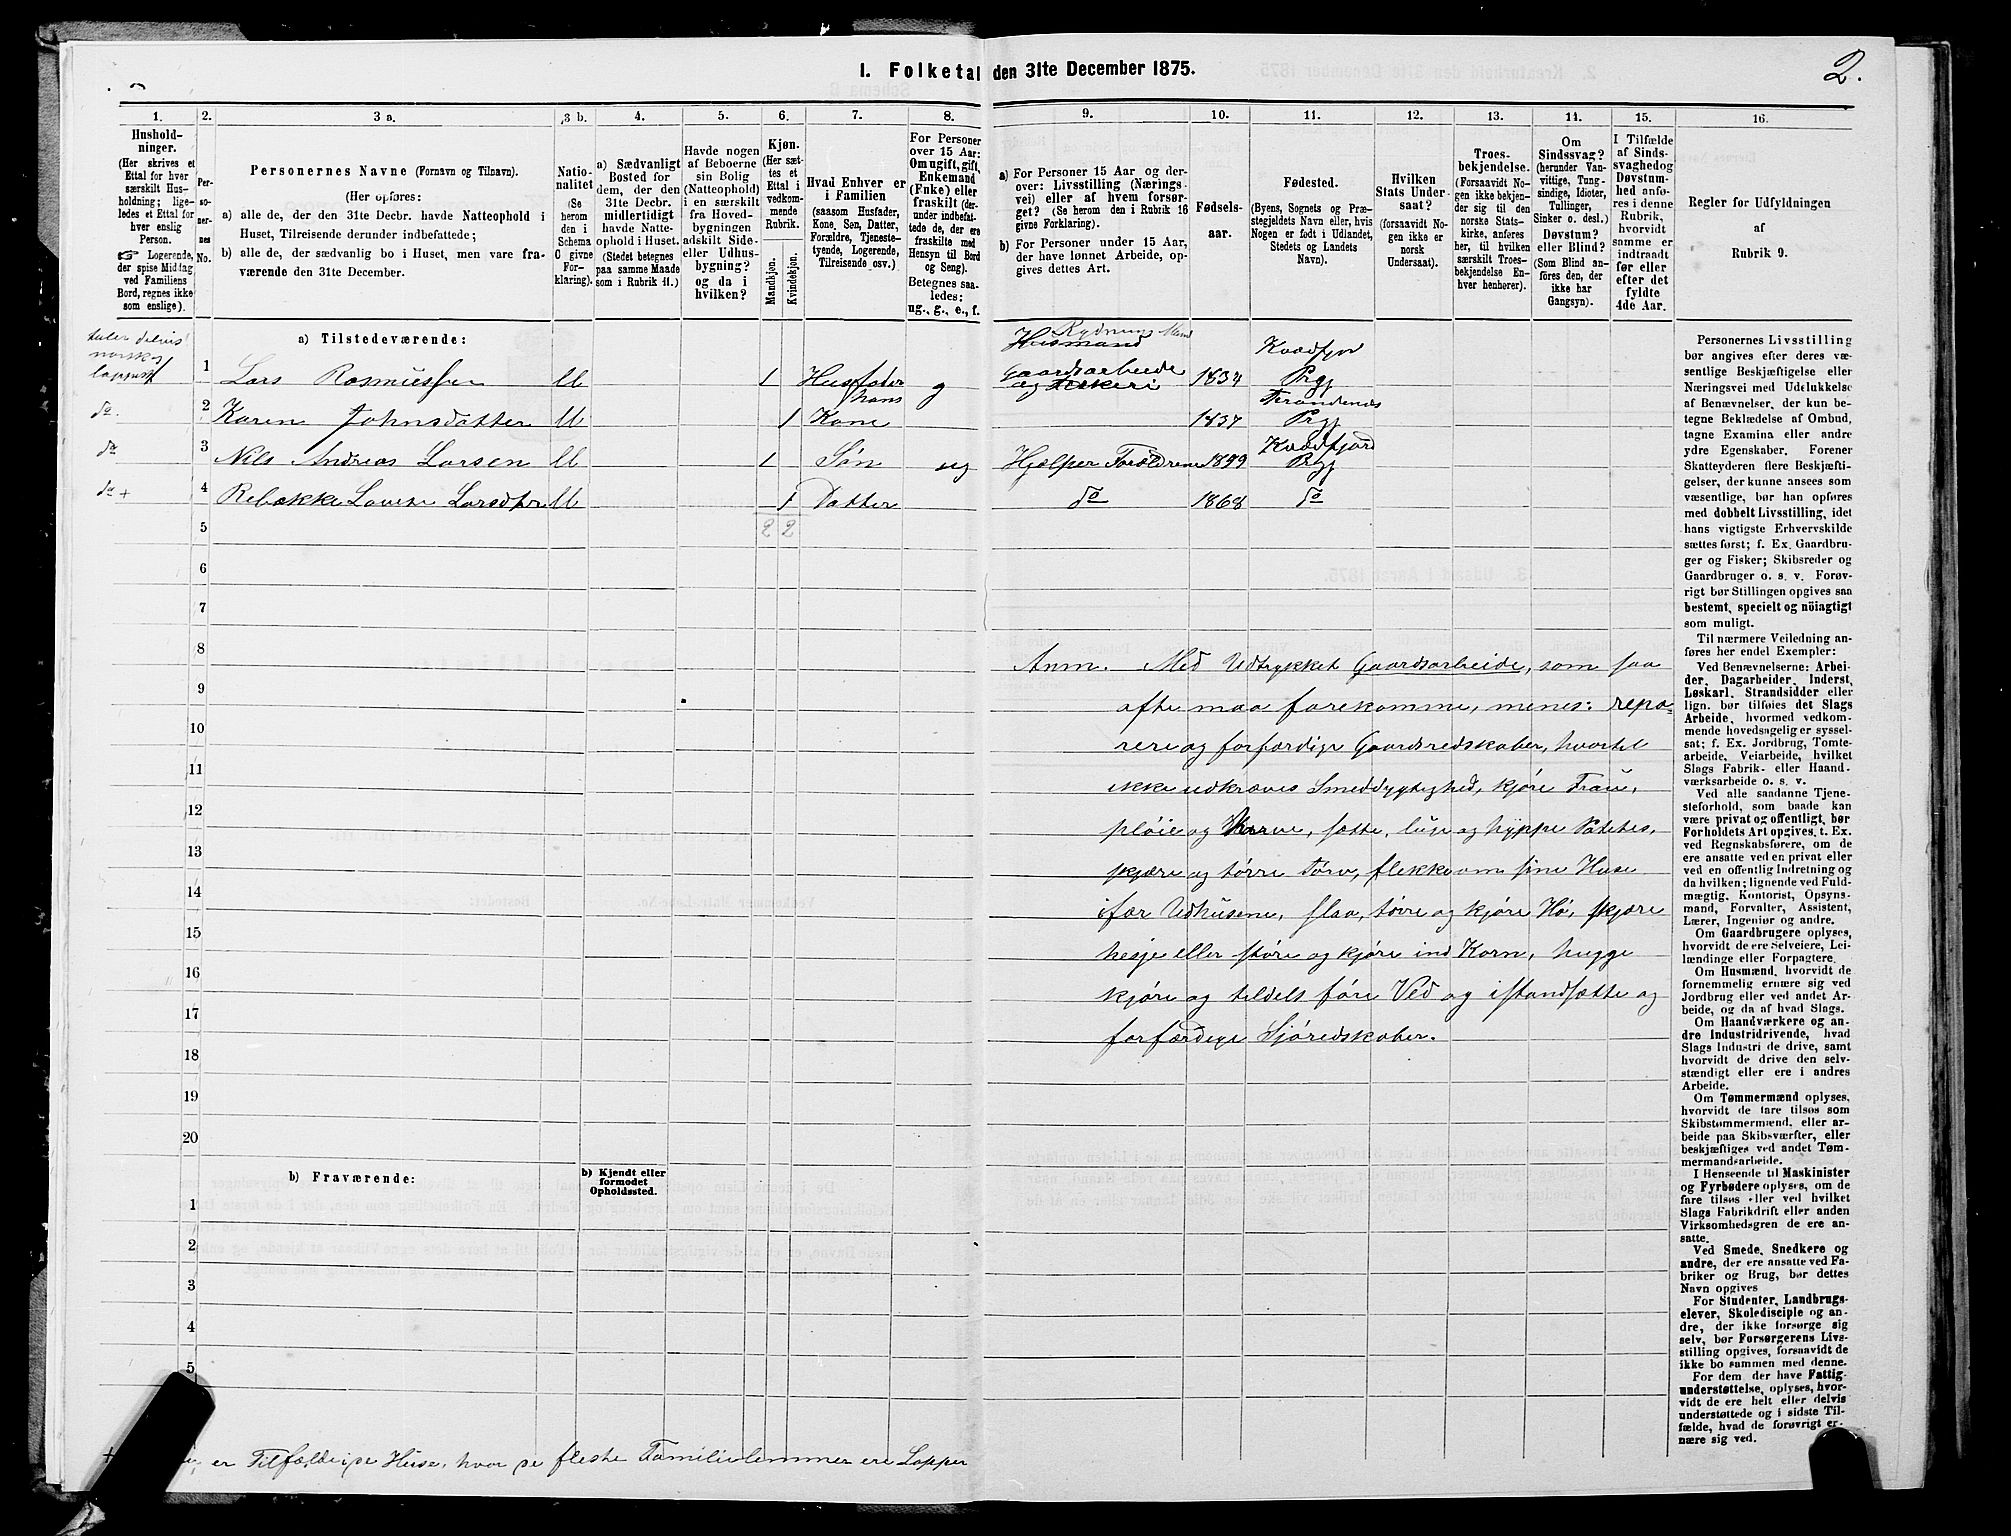 2.
1. Folketal den 31te December 1875.
1.
Hushold-
ninger.
(Her skrives et
Ettal for hver
særskilt Hus-
holdning; lige-
ledes et Ettal for
hver enslig
Person.
☞ Logerende,
der spise Middag
ved Familiens
Bord, regnes ikke
som enslige).
2.
Per-
so-
ner-
nes
No.
3 a.
Personernes Navne (Fornavn og Tilnavn).
(Her opføres:
a) alle de, der den 31te Decbr. havde Natteophold i
Huset, Tilreisende derunder indbefattede;
b) alle de, der sædvanlig bo i Huset, men vare fra-
værende den 31te December.
3 b.
Natio-
nalitet
(Se
herom
den i
Schema
C givne
For-
klaring).
4.
a) Sædvanligt
Bosted for
dem, der den
31te Decbr.
midlertidigt
havde Natte-
ophold i Huset.
(Stedet betegnes
paa samme Maade
som i Rubrik 11.)
5.
Havde nogen
af Beboerne
sin Bolig
(Natteophold)
i en særskilt
fra Hoved-
bygningen
adskilt Side-
eller Udhus-
bygning?
og da i
hvilken?
6.
Kjøn.
(Her sæt-
tes et
Ettal i
vedkom-
mende
Rubrik.
Mandkjøn.
Kvindekjøn.
7.
Hvad Enhver er
i Familien
(saasom Husfader,
Kone, Søn, Datter,
Forældre, Tjeneste-
tyende, Logerende,
Tilreisende osv.)
8.
For Personer
over 15 Aar:
Om ugift, gift,
Enkemand
(Enke) eller
fraskilt (der-
under indbefat-
tede de, der ere
fraskilte med
Hensyn til Bord
og Seng).
Betegnes saa-
ledes:
ug., g., e., f.
9.
a) For Personer 15 Aar og der-
over: Livsstilling (Nærings-
vei) eller af hvem forsør-
get? (Se herom den i Rubrik 16
givne Forklaring).
b) For Personer under 15 Aar,
der have lønnet Arbeide, op-
gives dettes Art.
10.
Fødsels-
aar.
11.
Fødested.
(Byens, Sognets og Præ-
stegjeldets Navn eller, hvis
Nogen er født i Udlandet,
Stedets og Landets
Navn).
12.
Hvilken
Stats Under-
saat?
(forsaavidt No-
gen ikke er
norsk
Undersaat).
13.
Troes-
bekjendelse.
(Forsaavidt No-
gen ikke bekjen-
der sig til den
norske Stats-
kirke, anføres
her, til hvilken
særskilt Troes-
bekjendelse En-
hver henhører).
14.
Om
Sindssvag?
(herunder Van-
vittige, Tung-
sindige, Idioter,
Tullinger,
Sinker o. desl.)
Døvstum?
eller Blind?
(Som Blind an-
føres den, der
ikke har
Gangsyn).
15.
I Tilfælde
af Sinds-
svaghed og
Døvstum-
hed anfø-
res i denne
Rubrik,
hvorvidt
samme er
indtraadt
før eller
efter det
fyldte
4de Aar.
16.
Regler for Udfyldningen
af
Rubrik 9.
a) Tilstedeværende:
taler delvis
norsk og
lappisk
1 Lars Rasmussen 1 Husfader g Husmand
Gaardsarbeide
og Fiskeri 1834 Kvædfjor
Prgj
do. 2 Karen Johnsdatter 1 hans
Kone 1837 Trondenæs
Prgj
do 3 Nils Andreas Larsen 1 Søn ug Hjælper Forældrene 1859 Kvædfjord
Prgj
do + 4 Rebækka Lovise Larsdtr 1 Datter do 1868 do
5 2 2
6
7
8
9
10
11
12
13
14
15
16
17
18
19
20
Anm. Med Udtrykket Gaardsarbeide, som saa
ofte maa forekomme, menes: repa-
rere og forfærdige Gaardsredskaber, hvortil
ikke udkræves Smeddygtighed, kjøre
pløie og Harve, sætte, luge og hyppe Potetes,
skjære og tørre Torv, flekke om sine Huse
især Udhusene, slaa, tørre og kjøre Hø, skjære
hesje eller støre og kjøre ind Korn, hugge
kjøre og tildels føre Ved og istandsætte og
forfærdige Sjøredskaber.
b) Fraværende:
b) Kjendt eller
formodet
Opholdssted.
1
2
3
4
5
er Tilfælde i de Huse, hvor de fleste Familielemmer ere Lapper
Personernes Livsstilling
bør angives efter deres væ-
sentlige Beskjæftigelse eller
Næringsvei med Udelukkelse
af Benævnelser, der kun be-
tegne Beklædelse af Ombud,
tagne Examina eller andre
ydre Egenskaber. Forener
Skatteyderen flere Beskjæfti-
gelser, der kunne ansees som
væsentlige, bør han opføres
med dobbelt Livsstilling, idet
hans vigtigste Erhvervskilde
sættes først; f. Ex. Gaardbru-
ger og Fisker; Skibsreder og
Gaardbruger o. s. v. Forøv-
rigt bør Stillingen opgives saa
bestemt, specielt og nöiagtigt
som muligt.
Til nærmere Veiledning an-
føres her endel Exempler:
Ved Benævnelserne: Arbei-
der, Dagarbeider, Inderst,
Løskarl, Strandsidder eller
lign. bør tilføies det Slags
Arbeide, hvormed vedkom-
mende hovedsagelig er syssel-
sat; f. Ex. Jordbrug, Tomte-
arbeide, Veiarbeide, hvilket
Slags Fabrik- eller Haand-
værksarbeide o. s. v.
Ved alle saadanne Tjene-
steforhold, som baade kan
være privat og offentligt, bør
Forholdets Art opgives, t. Ex.
ved Regnskabsførere, om de
ere ansatte ved en privat eller
ved en offentlig Indretning og
da hvilken; lignende ved Fuld-
mægtig, Kontorist, Opsyns-
mand, Forvalter, Assistent,
Lærer, Ingeniør og andre.
Om Gaardbrugere oplyses,
hvorvidt de ere Selveiere, Lei-
lændinge eller Forpagtere.
Om Husmænd, hvorvidt de
fornemmelig ernære sig ved
Jordbrug eller ved andet Ar-
beide, og da af hvad Slags.
Om Haandværkere og an-
dre Industridrivende, hvad
Slags Industri de drive, samt
hvorvidt de drive den selv-
stændigt eller ere i andres
Arbeide.
Om Tømmermænd oplyses,
hvorvidt de fare tilsøs som
Skibstømmermænd, eller ar-
beide paa Skibsværfter, eller
beskjæftiges ved andet Tøm-
mermandsarbeide.
I Henseende til Maskinister
og Fyrbødere oplyses, om de
fare tilsøs eller ved hvilket
Slags Fabrikdrift eller anden
Virksomhedsgren de ere an-
satte.
Ved Smede, Snedkere og
andre, der ere ansatte ved Fa-
briker og Brug, bør dettes
Navn opgives
For Studenter, Landbrugs-
elever, Skoledisciple og an-
dre, der ikke forsørge sig
selv, bør Forsørgerens Livs-
stilling opgives, forsaavidt de
ikke bo sammen med denne.
For dem, der have Fattig-
understøttelse, oplyses, hvor-
vidt de ere helt eller delvis
understøttede og i sidste Til-
fælde, hvad de forøvrigt er-
nære sig ved.